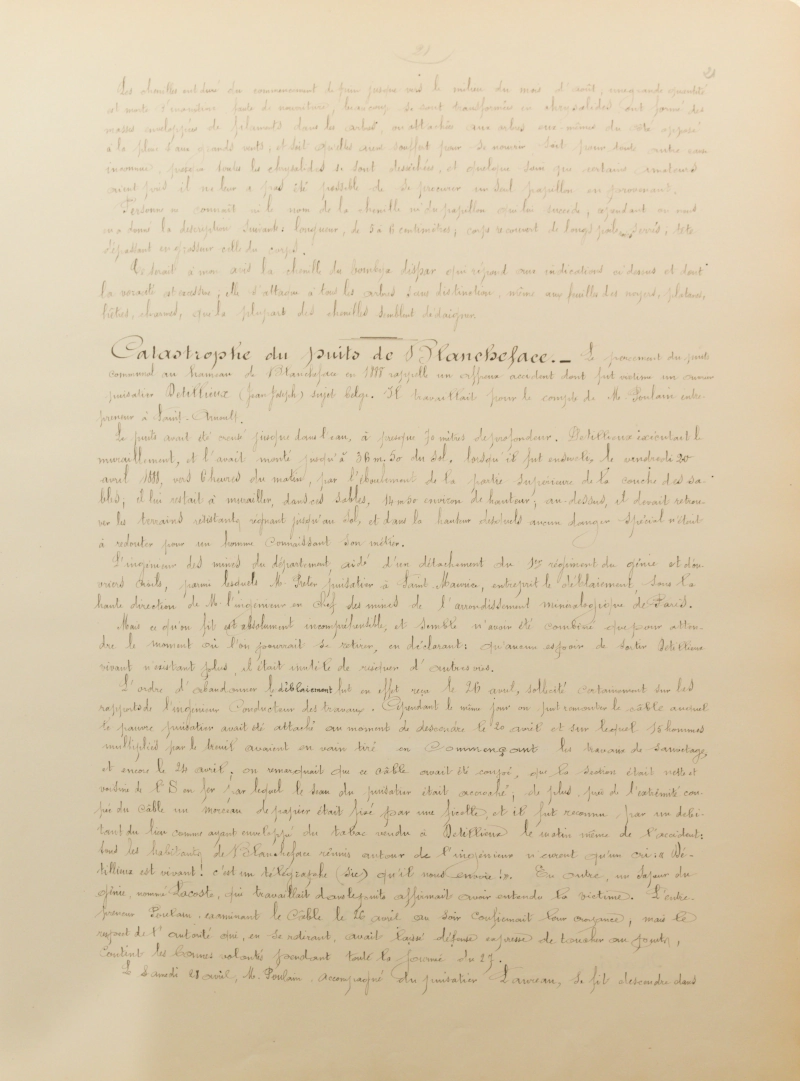 21
21
Les chenilles ont duré du commencement de juin jusque vers le milieu du mois d'août, une grande quantité
est morte à ce moment faute de nourriture, beaucoup se sont transformées en chrysalides ont formé des
masses enveloppées de filaments dans les arbres, ou attachées aux arbres eux-mêmes du côté opposé
à la pluie & aux grands vents, et soit qu'elles aient souffert pour se nourrir soit pour toute autre cause
inconnue, presque toutes les chrysalides se sont desséchées, et quelque soin que certains amateurs
aient pris il ne leur a pas été possible de se procurer un seul papillon en provenant.
Personne ne connait ni le nom de la chenille ni du papillon qui lui succède, cependant on nous
en a donné la description suivante: longueur, de 5 à 6 centimètres; corps recouvert de longs poils serrés; tête
dépassant en grosseur celle du corps.
Ce serait à mon avis la chenille du bombyx dispar qui répond aux indications ci-dessus et dont
la voracité est excessive; elle s'attaque à tous les arbres sans distinction, même aux feuilles des noyers, platanes,
hêtres, charmes, que la plupart des chenilles semblent dédaigner.
Catastrophe du puits de Blancheface. — Le percement du puits
communal au hameau de Blancheface en 1888 rappelle un affreux accident dont fut victime un ouvrier
puisatier Detillieux (Jean Joseph) sujet belge. Il travaillait pour le compte de Mr Poulain entre-
preneur à Saint-Arnoult.
Le puits avait été creusé jusque dans l'eau, à presque 70 mètres de profondeur. Detillieux exécutant le
muraillement, et l'avait monté jusqu'à 36 m. 50 du sol, lorsqu'il fut enseveli, le vendredi 20
avril 1888, vers 6 heures du matin, par l'éboulement de la partie supérieure de la couche des sa-
bles; il lui restait à murailler, dans ces sables, 14 m 50 environ de hauteur; au-dessus, il devait retrou-
ver les terrains résistants régnant jusqu'au sol, et dans la hauteur desquels aucun danger spécial n'était
à redouter pour un homme connaissant son métier.
L'ingénieur des mines du département, aidé d'un détachement du 1er régiment du génie et d'ou-
vriers civils, parmi lesquels Mr puisatier à Saint Maurice, entreprit le déblaiement, sous la
haute direction de Mr l'ingénieur en chef des mines de l'arrondissement minéralogique de Paris.
Mais ce qu'on fit est absolument incompréhensible, et semble n'avoir été combiné que pour atten-
dre le moment où l'on pourrait se retirer, en déclarant: qu'aucun espoir de sortir Detillieux
vivant n'existant plus, il était inutile de risquer d'autres vies.
L'ordre d'abandonner le déblaiement fut en effet reçu le 26 avril, sollicité certainement sur les
rapports de l'ingénieur conducteur des travaux. Cependant le même jour on put remonter le câble auquel
le pauvre puisatier avait été attaché au moment de descendre le 20 avril et sur lequel 15 hommes
multipliés par le treuil avaient en vain tiré en commençant les travaux de sauvetage,
et encore le 24 avril, on remarquait que ce câble avait été coupé, que la section était nette et
voisine de l'S en fer par lequel le seau du puisatier était accroché; de plus, près de l'extrémité cou-
pée du câble un morceau de papier était fixé par une ficelle, et il fut reconnu par un débi-
tant du lieu comme ayant enveloppé du tabac vendu à Detillieux le matin même de l'accident;
tous les habitants de Blancheface réunis autour de l'ingénieur n'eurent qu'un cri: « De-
tillieux est vivant! c'est un télégraphe (sic) qu'il nous envoie!». En outre, un sapeur du
génie, nommé Lacoste, qui travaillait dans le puits affirmait avoir entendu la victime. L'entre-
preneur Poulain, examinant le câble le 26 avril au soir confirmait leur croyance, mais le
respect de l'autorité qui, en se retirant, avait laissé défense expresse de toucher au puits,
contint des bonnes volontés pendant toute la journée du 27.
Le samedi 28 avril, Mr. Poulain, accompagné du puisatier Favreau, se fit descendre dans